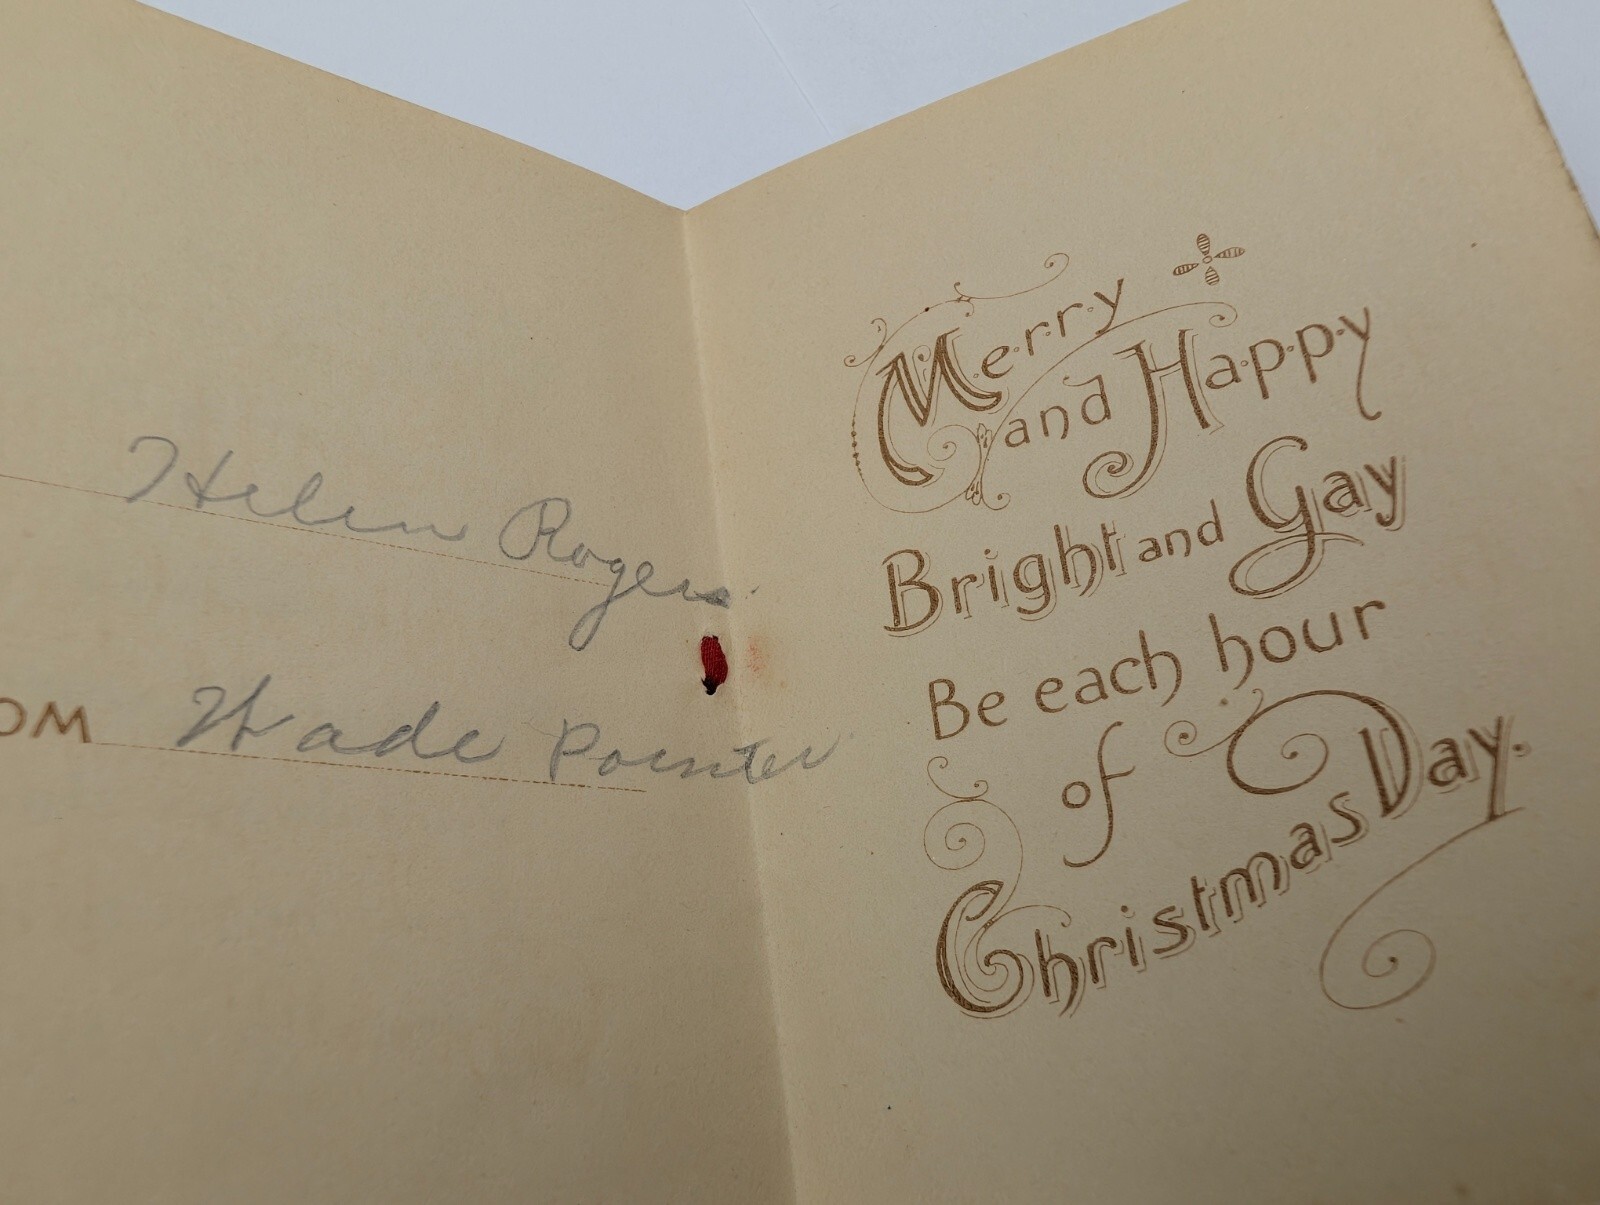 Helen Rogers
OM Wade Pointer
Merry
and Happy
Bright and Gay
Be each hour
of
Christmas Day.